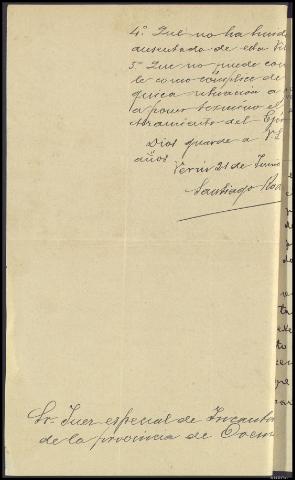 4º Que no ha huid
ausentado de esta Vi
5º Que no puede con
le como cómplice de
quica situación a
a poner termino el
Alzamiento del Ejér
Dios guarde a V.S.
años
Verin 21 de Junio
Santiago Rod
Sr. Juez especial de Incauta
de la provincia de Oren